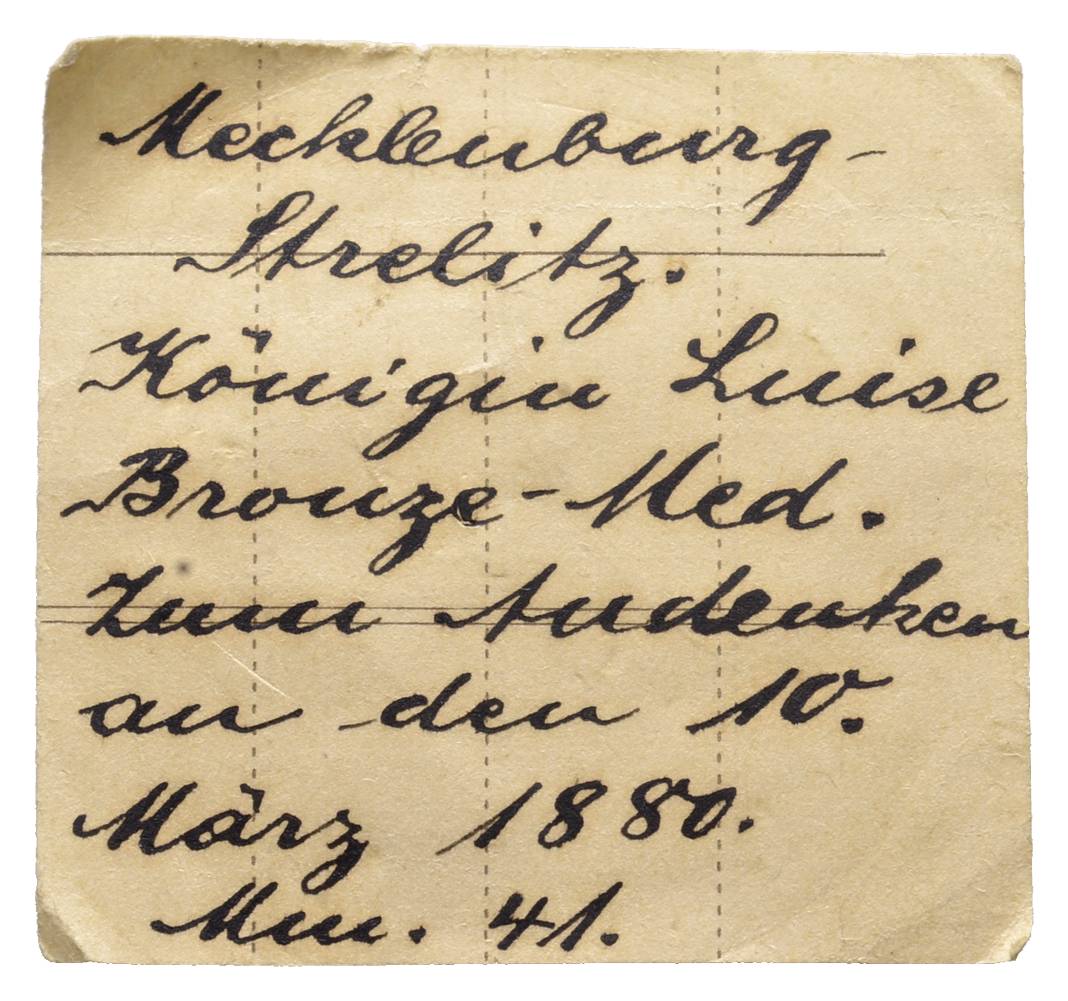 Mecklenburg-
Strelitz.
Königin Luise
Bronze-Med.
Zum Andenken
an den 10.
März 1880.
Mm. 41.